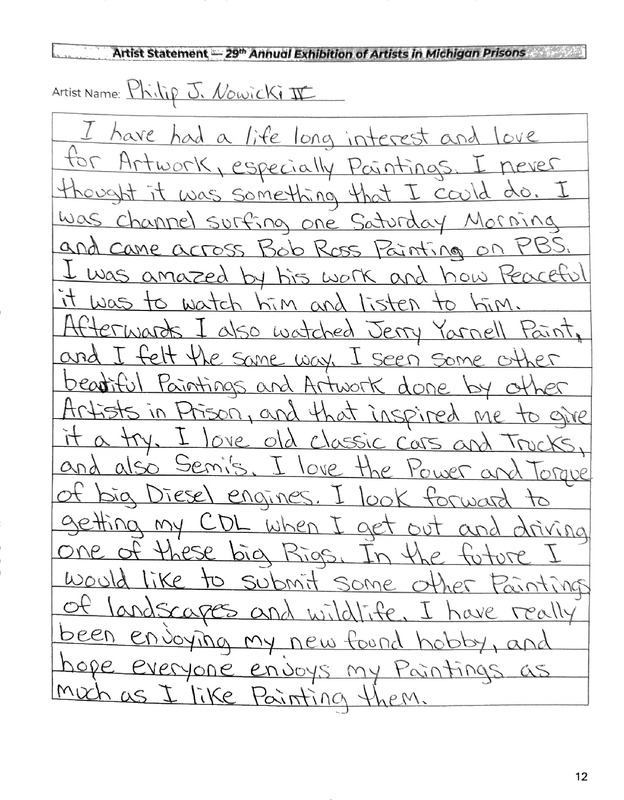 Artist Statement — 29th Annual Exhibition of Artists in Michigan Prisons
Artist Name: Philip J. Nowicki IV
I have had a life long interest and love
for Artwork, especially Paintings. I never
thought it was something that I could do. I
was channel surfing one Saturday Morning
and came across Bob Ross Painting on PBS.
I was amazed by his work and how Peaceful
it was to watch him and listen to him.
Afterwards I also watched Jerry Yarnell Paint,
and I felt the same way. I seen some other
beautiful Paintings and Artwork done by other
Artists in Prison, and that inspired me to give
it a try. I love old classic cars and Trucks,
and also Semi's. I love the Power and Torque
of big Diesel engines. I look forward to
getting my CDL when I get out and driving
one of these big Rigs. In the future I
would like to submit some other Paintings
of landscapes and wildlife. I have really
been enjoying my new found hobby, and
hope everyone enjoys my Paintings as
much as I like Painting them.
12